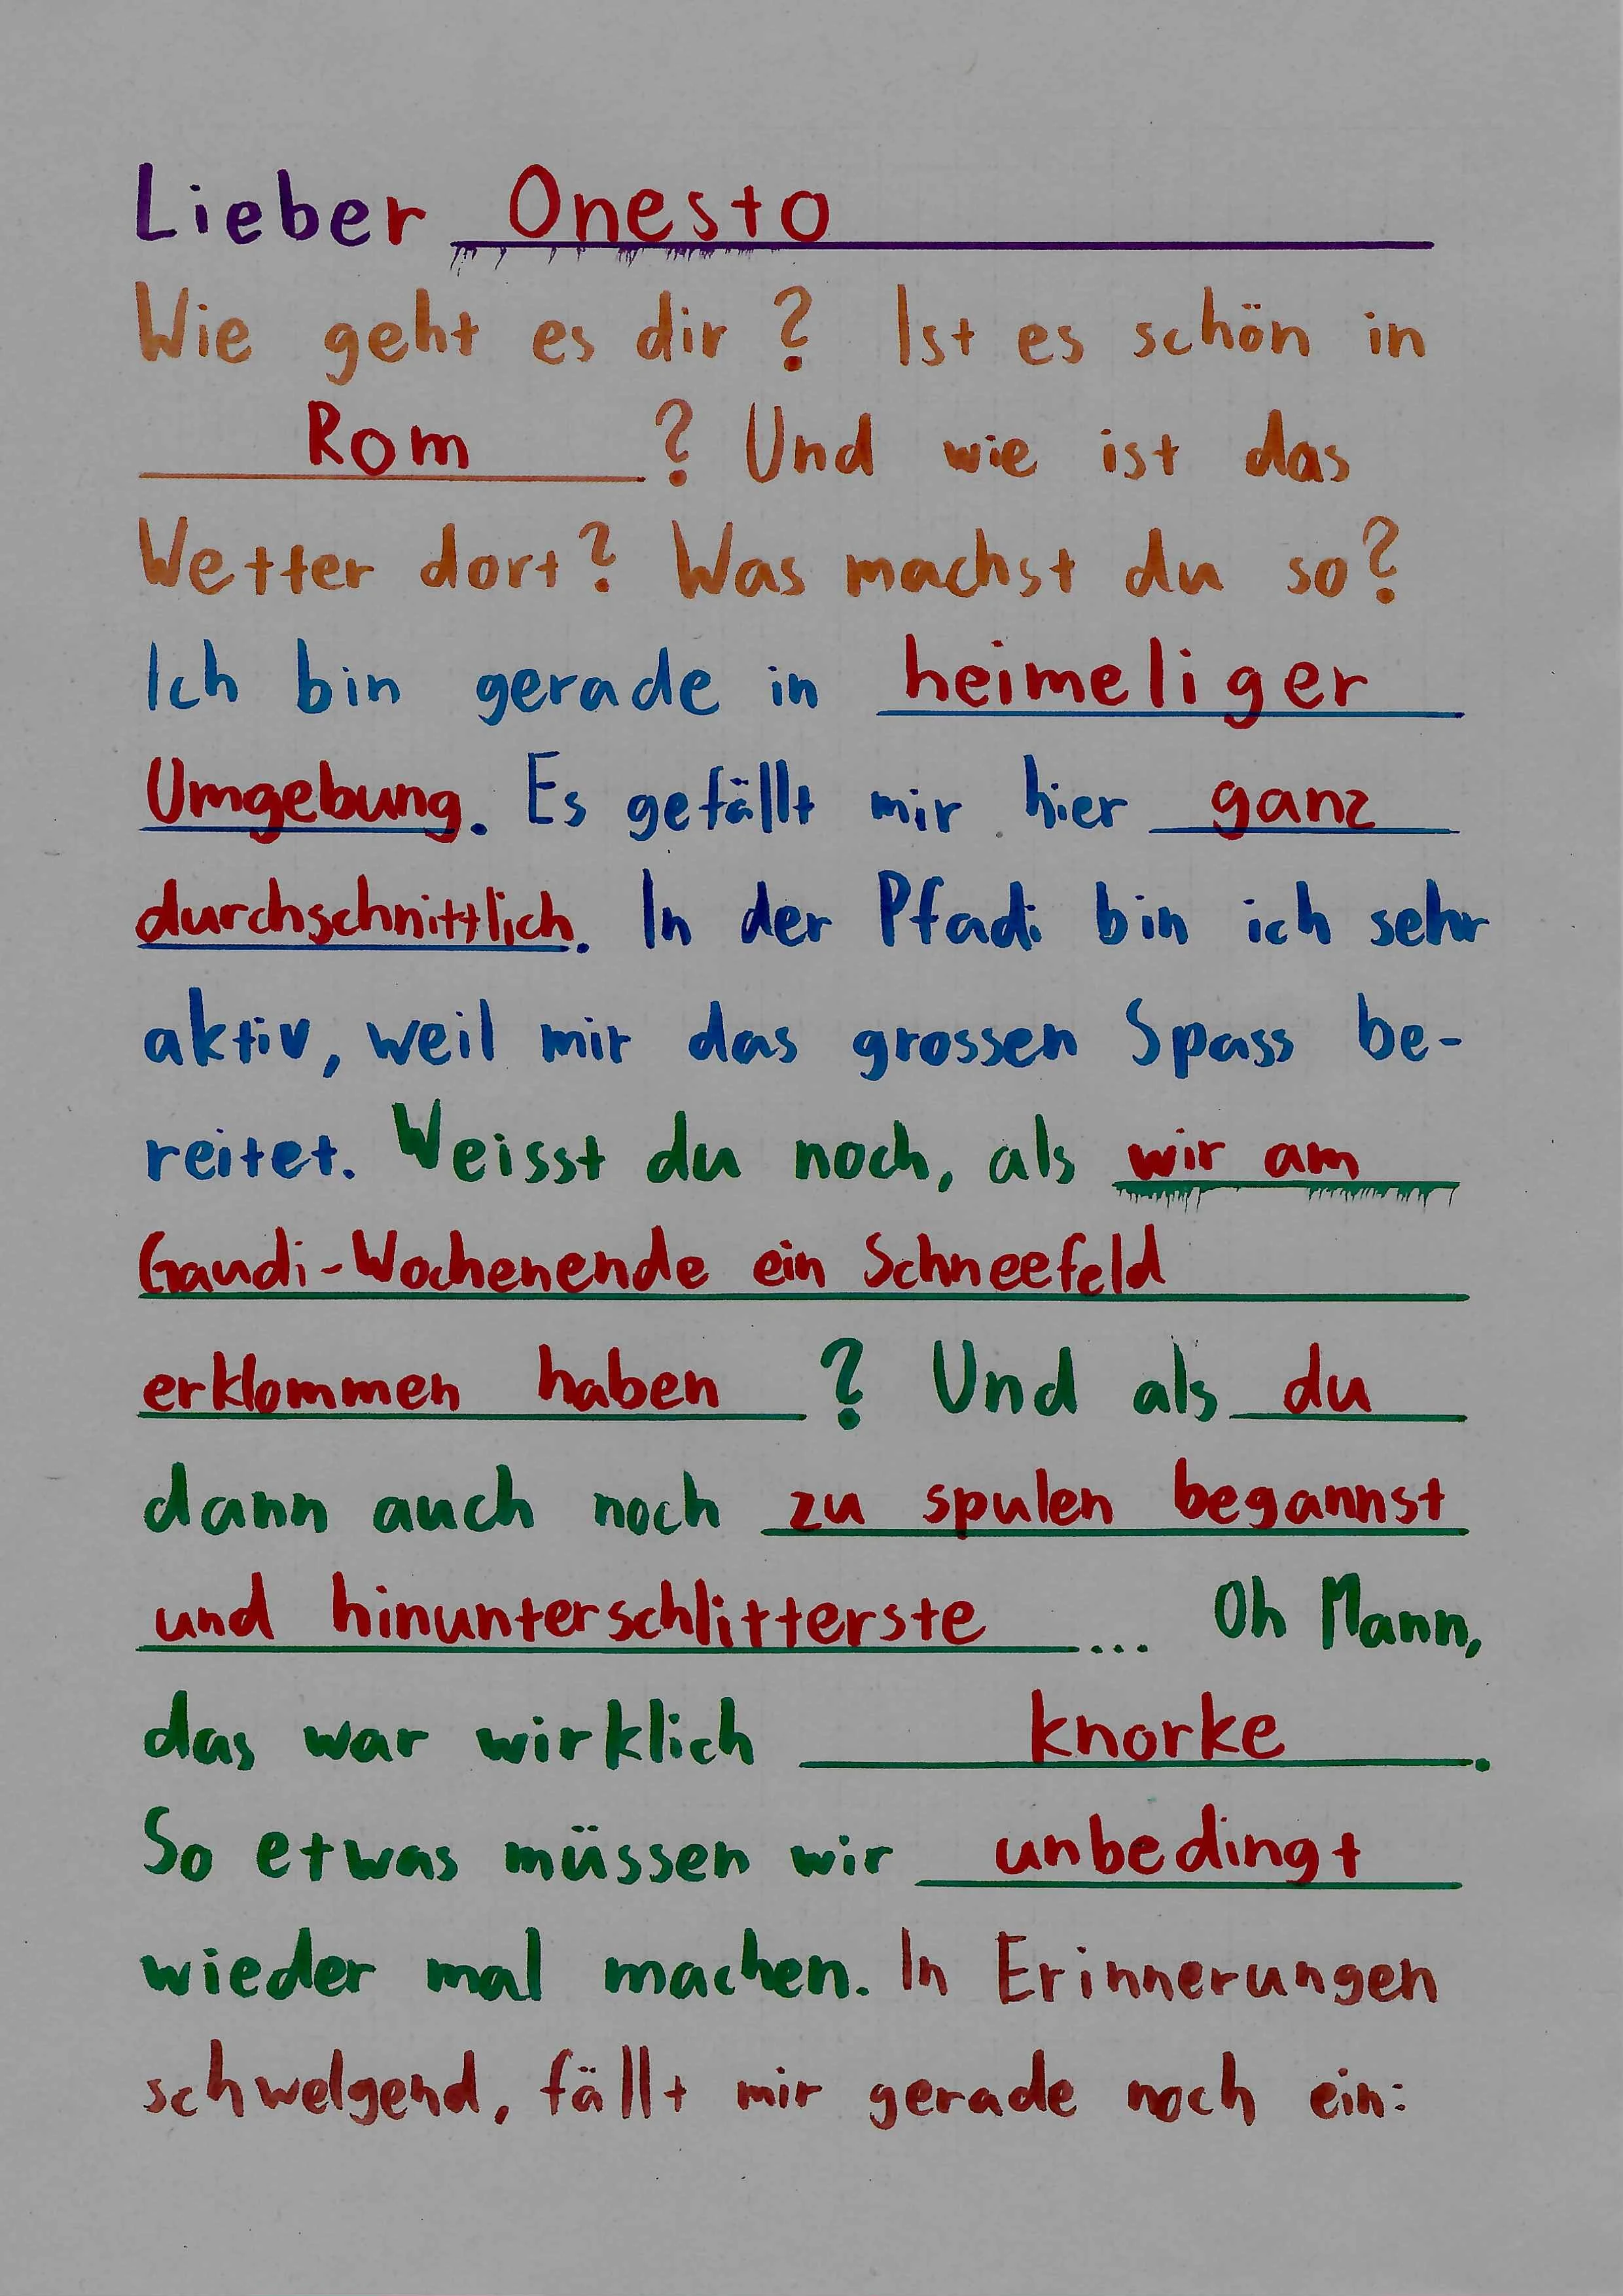 Lieber Onesto
Wie geht es dir? Ist es schön in
Rom? Und wie ist das
Wetter dort? Was machst du so?
Ich bin gerade in heimeliger
Umgebung. Es gefällt mir hier ganz
durchschnittlich. In der Pfadi bin ich sehr
aktiv, weil mir das grossen Spass be-
reitet. Weisst du noch, als wir am
Gaudi-Wochenende ein Schneefeld
erklommen haben? Und als du
dann auch noch zu spulen begannst
und hinunterschlitterste... Oh Mann,
das war wirklich knorke.
So etwas müssen wir unbedingt
wieder mal machen. In Erinnerungen
schwelgend, fällt mir gerade noch ein: